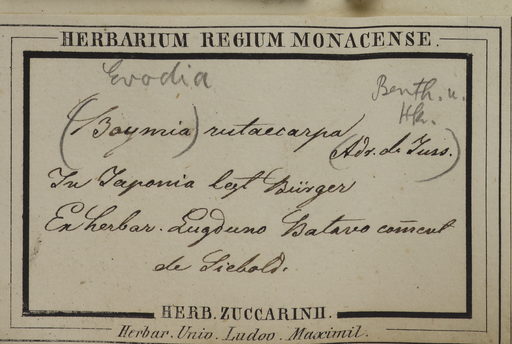 HERBARIUM REGIUM MONACENSE.
Evodia
Benth. u.
Hk.
(Boymia) rutaecarpa
(Adr. de Juss.)
In Japonia legt Bürger
Ex herbar. Lugduno Batavo com̅ent
de Siebold.
HERB. ZUCCARINII.
Herbar. Univ. Ludov. Maximil.